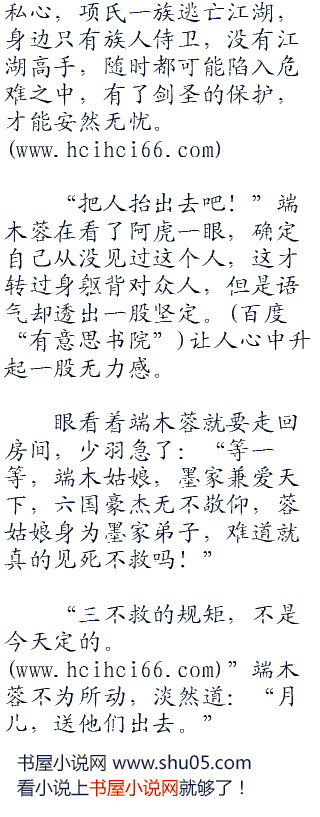 私心，项氏一族逃亡江湖，
身边只有族人侍卫，没有江
湖高手，随时都可能陷入危
难之中，有了剑圣的保护，
才能安然无忧。
(www.hcihci66.com)
“把人抬出去吧！”端
木蓉在看了阿虎一眼，确定
自己从没见过这个人，这才
转过身躯背对众人，但是语
气却透出一股坚定。(百度
“有意思书院”)让人心中升
起一股无力感。
眼看着端木蓉就要走回
房间，少羽急了：“等一
等，端木姑娘，墨家兼爱天
下，六国豪杰无不敬仰，蓉
姑娘身为墨家弟子，难道就
真的见死不救吗！”
“三不救的规矩，不是
今天定的。
(www.hcihci66.com)”端木
蓉不为所动，淡然道：“月
儿，送他们出去。”
书屋小说网 www.shu05.com
看小说上书屋小说网就够了！